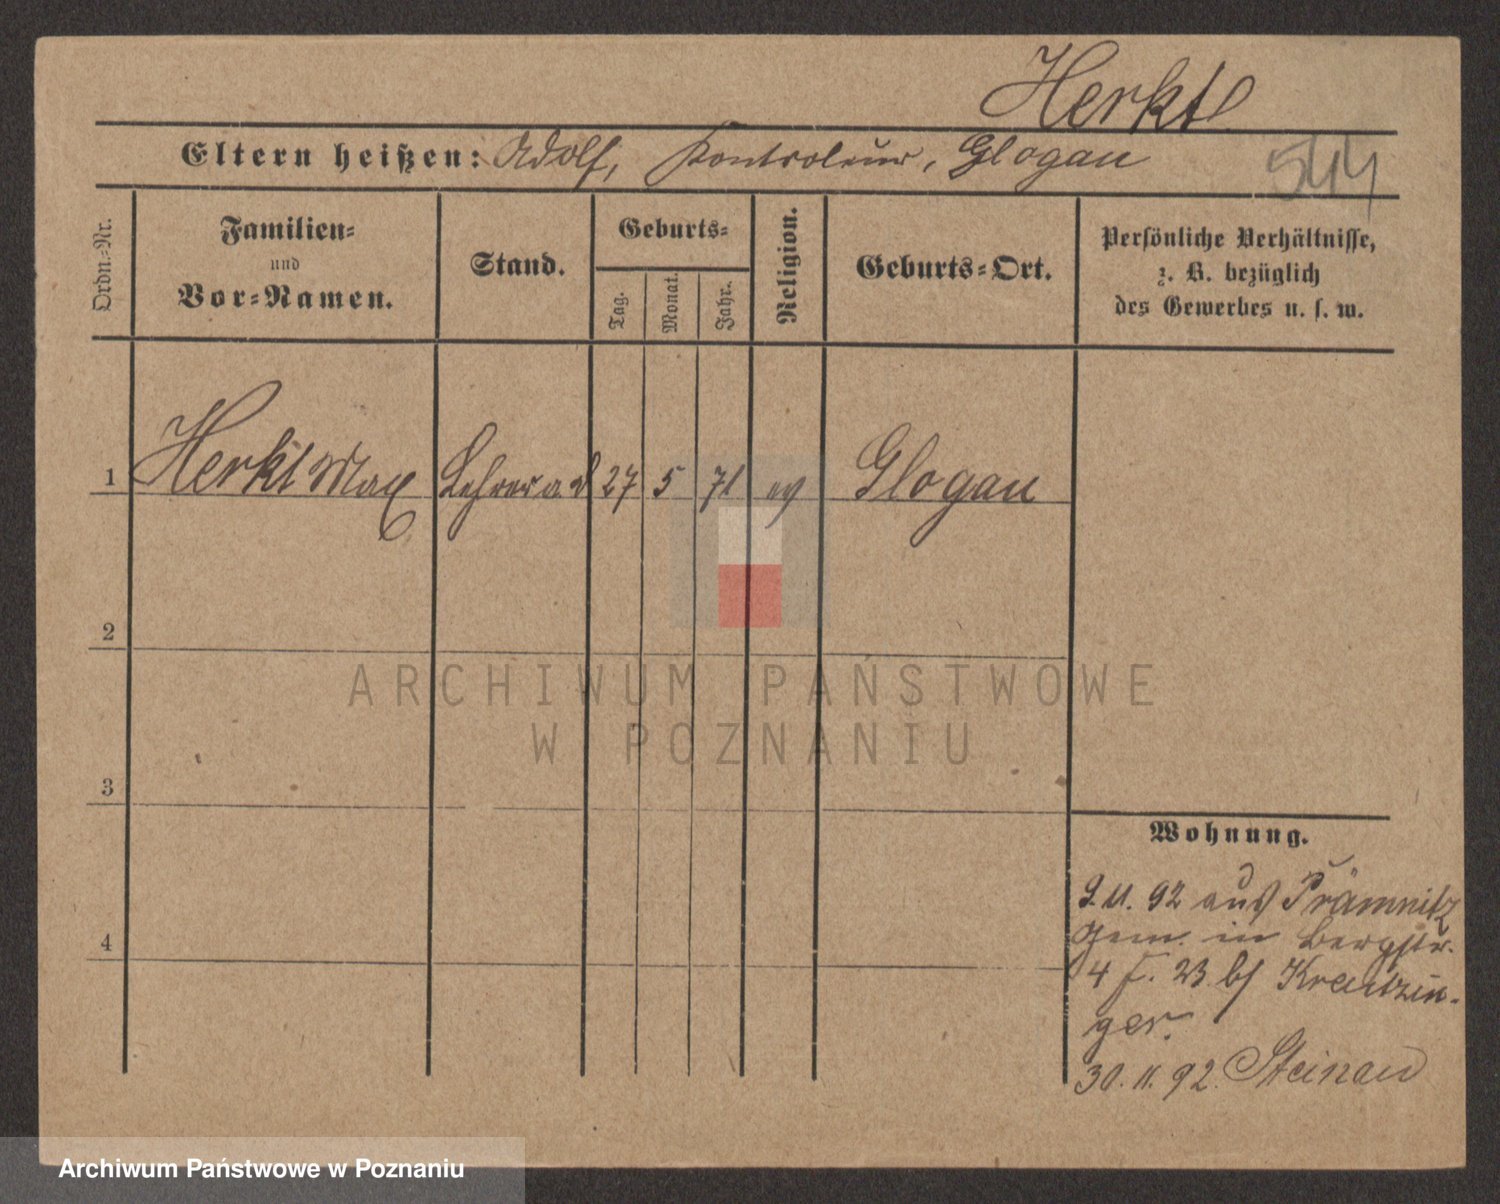 Herkt
Eltern heißen: Adolf, Kontroleur, Glogau
544
Ordn.-Nr.
Familien-
und
Vor-Namen.
Stand.
Geburts-
Tag.
Monat.
Jahr.
Religion.
Geburts-Ort.
Persönliche Verhältnisse,
z. B. bezüglich
des Gewerbes u. s. w.
1 Herkt Max Lehrer a. D 27 5 71 ev Glogau
2
ARCHIWUM PAŃSTWOWE
W POZNANIU
3
Wohnung.
9.11.92 aus Prämnitz
4
Gem. in Bergstr.
4 I. 23. bei Kreutzin-
ger.
30.11.92. Steinau
Archiwum Państwowe w Poznaniu